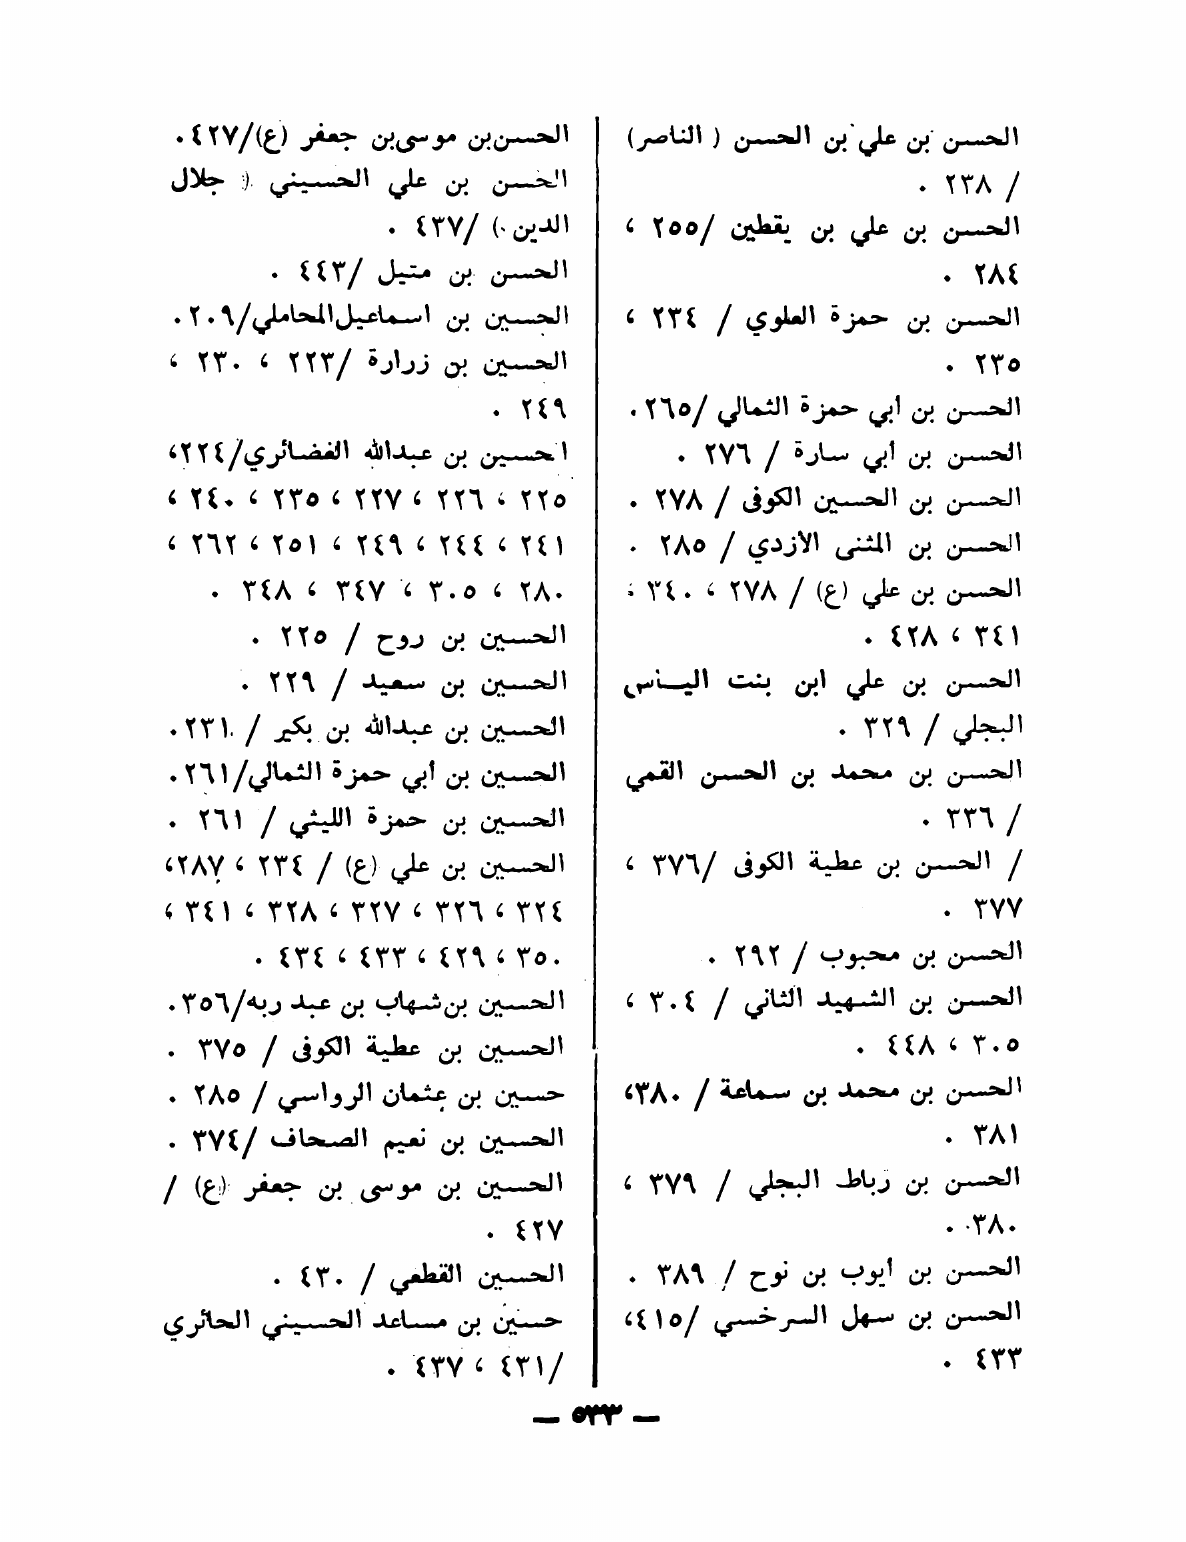 الحسن بن علي بن الحسن ( الناصر)
/ ٢٣٨ .
الحسن بن علي بن يقطين /٢٥٥ ،
٢٨٤ .
الحسن بن حمزة العلوي / ٢٣٤ ،
٢٣٥ .
الحسن بن أبي حمزة الثمالي /٢٦٥.
الحسن بن أبي سارة / ٢٧٦ .
الحسن بن الحسين الكوفى / ٢٧٨ .
الحسن بن المثنى الازدي / ٢٨٥ .
الحسن بن علي (ع) / ٢٧٨ ، ٣٤٠ ،
٣٤١ ، ٤٢٨ .
الحسن بن علي ابن بنت الياس
البجلي / ٣٢٩ .
الحسن بن محمد بن الحسن القمي
/ ٣٣٦ .
/ الحسن بن عطية الكوفى /٣٧٦ ،
٣٧٧ .
الحسن بن محبوب / ٢٩٢ .
الحسن بن الشهيد الثاني / ٣٠٤ ،
٣٠٥ ، ٤٤٨ .
الحسن بن محمد بن سماعة / ٣٨٠،
٣٨١ .
الحسن بن رباط البجلي / ٣٧٩ ،
٣٨٠ .
الحسن بن أيوب بن نوح / ٣٨٩ .
الحسن بن سهل السرخسي /٤١٥،
٤٣٣ .
الحسن بن موسى بن جعفر (ع)/٤٢٧.
الحسن بن علي الحسيني ( جلال
الدين ) /٤٣٧ .
الحسن بن متيل /٤٤٣ .
الحسين بن اسماعيل المحاملي/٢٠٩.
الحسين بن زرارة /٢٢٣ ، ٢٣٠ ،
٢٤٩ .
الحسين بن عبدالله الغضائري/٢٢٤،
٢٢٥ ، ٢٢٦ ، ٢٢٧ ، ٢٣٥ ، ٢٤٠ ،
٢٤١ ، ٢٤٤ ، ٢٤٩ ، ٢٥١ ، ٢٦٢ ،
٢٨٠ ، ٣٠٥ ، ٣٤٧ ، ٣٤٨ .
الحسين بن روح / ٢٢٥ .
الحسين بن سعيد / ٢٢٩ .
الحسين بن عبدالله بن بكير / ٢٣١.
الحسين بن أبي حمزة الثمالي/٢٦١.
الحسين بن حمزة الليثي / ٢٦١ .
الحسين بن علي (ع) / ٢٣٤ ، ٢٨٧،
٣٢٤ ، ٣٢٦ ، ٣٢٧ ، ٣٢٨ ، ٣٤١ ،
٣٥٠ ، ٤٢٩ ، ٤٣٣ ، ٤٣٤ .
الحسين بن شهاب بن عبد ربه/٣٥٦.
الحسين بن عطية الكوفى / ٣٧٥ .
حسين بن عثمان الرواسي / ٢٨٥ .
الحسين بن نعيم الصحاف /٣٧٤ .
الحسين بن موسى بن جعفر (ع) /
٤٢٧ .
الحسين القطعي / ٤٣٠ .
حسين بن مساعد الحسيني الحائري
/٤٣١ ، ٤٣٧ .
— ٥٣٣ —